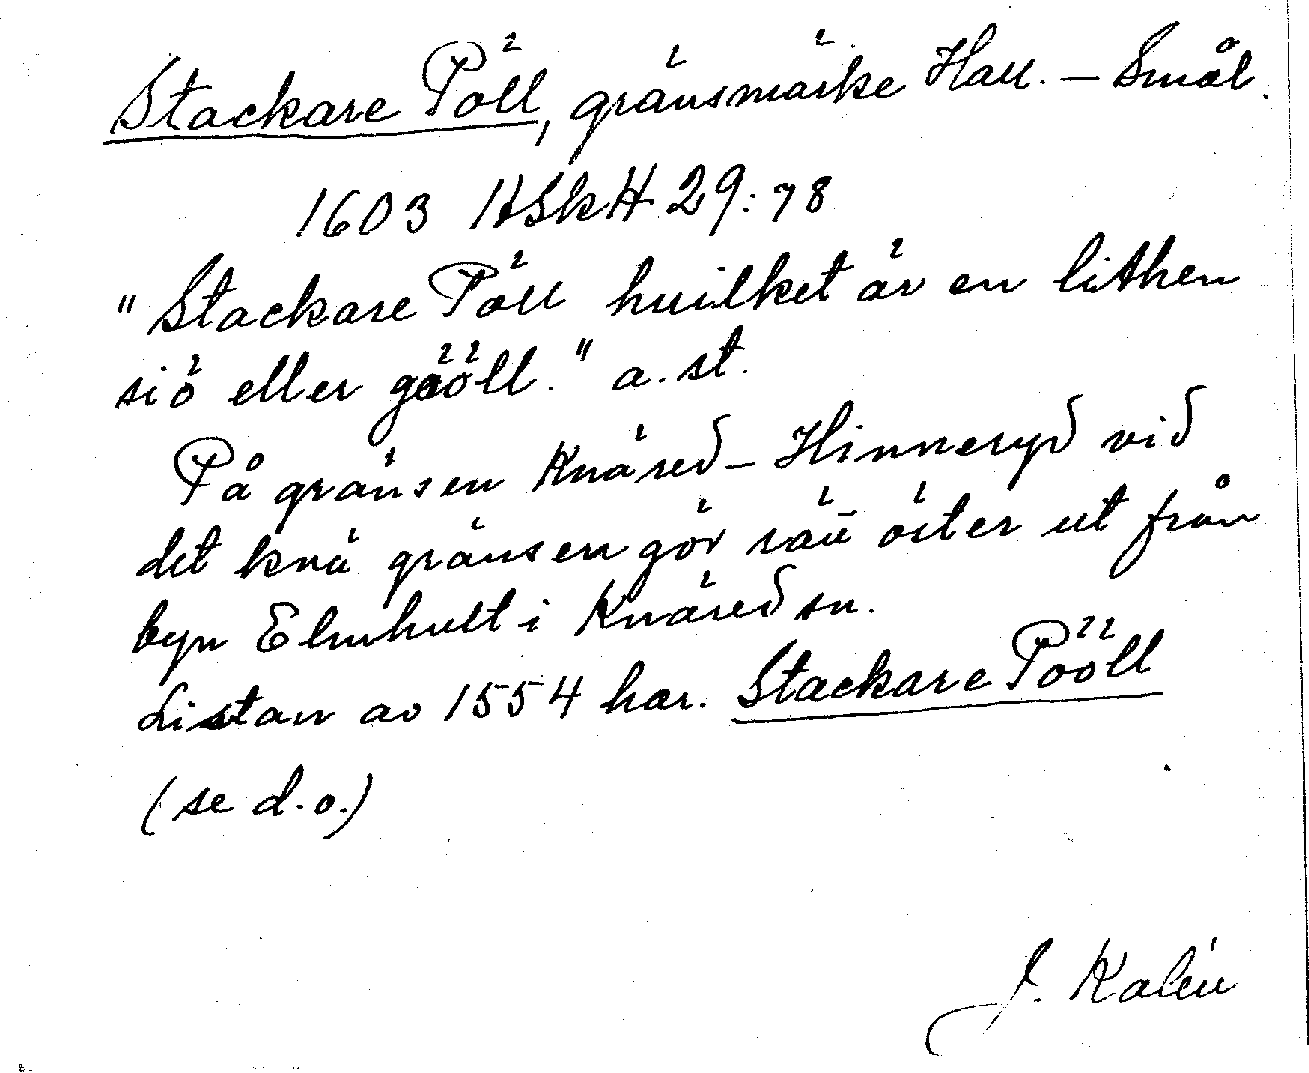 Stackare Pöll, gränsmärke Hall. – Smål.
1603 HSkH 29:78
"Stackare Pöll huilket är en lithen
siö eller gööll." a. st.
På gränsen Knäred – Hinneryd vid
det knä gränsen gör rätt öster ut från
byn Elmhult i Knäred sn.
Listan av 1554 har. Stackare Pööll
(se d.o.)
J. Kalén